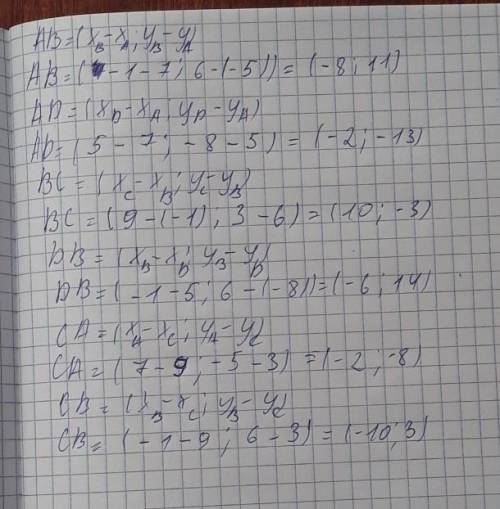 AB=(x_B-x_A; y_B-y_A)
AB=(-1-7; 6-(-5))=(-8; 11)
AD=(x_D-x_A; y_D-y_A)
AD=(5-7; -8-5)=(-2; -13)
BC=(x_C-x_B; y_C-y_B)
BC=(9-(-1), 3-6)=(10; -3)
DB=(x_B-x_D; y_B-y_D)
DB=(-1-5; 6-(-8))=(-6; 14)
CA=(x_A-x_C; y_A-y_C)
CA=(7-9; -5-3)=(-2; -8)
CB=(x_B-x_C; y_B-y_C)
CB=(-1-9; 6-3)=(-10; 3)